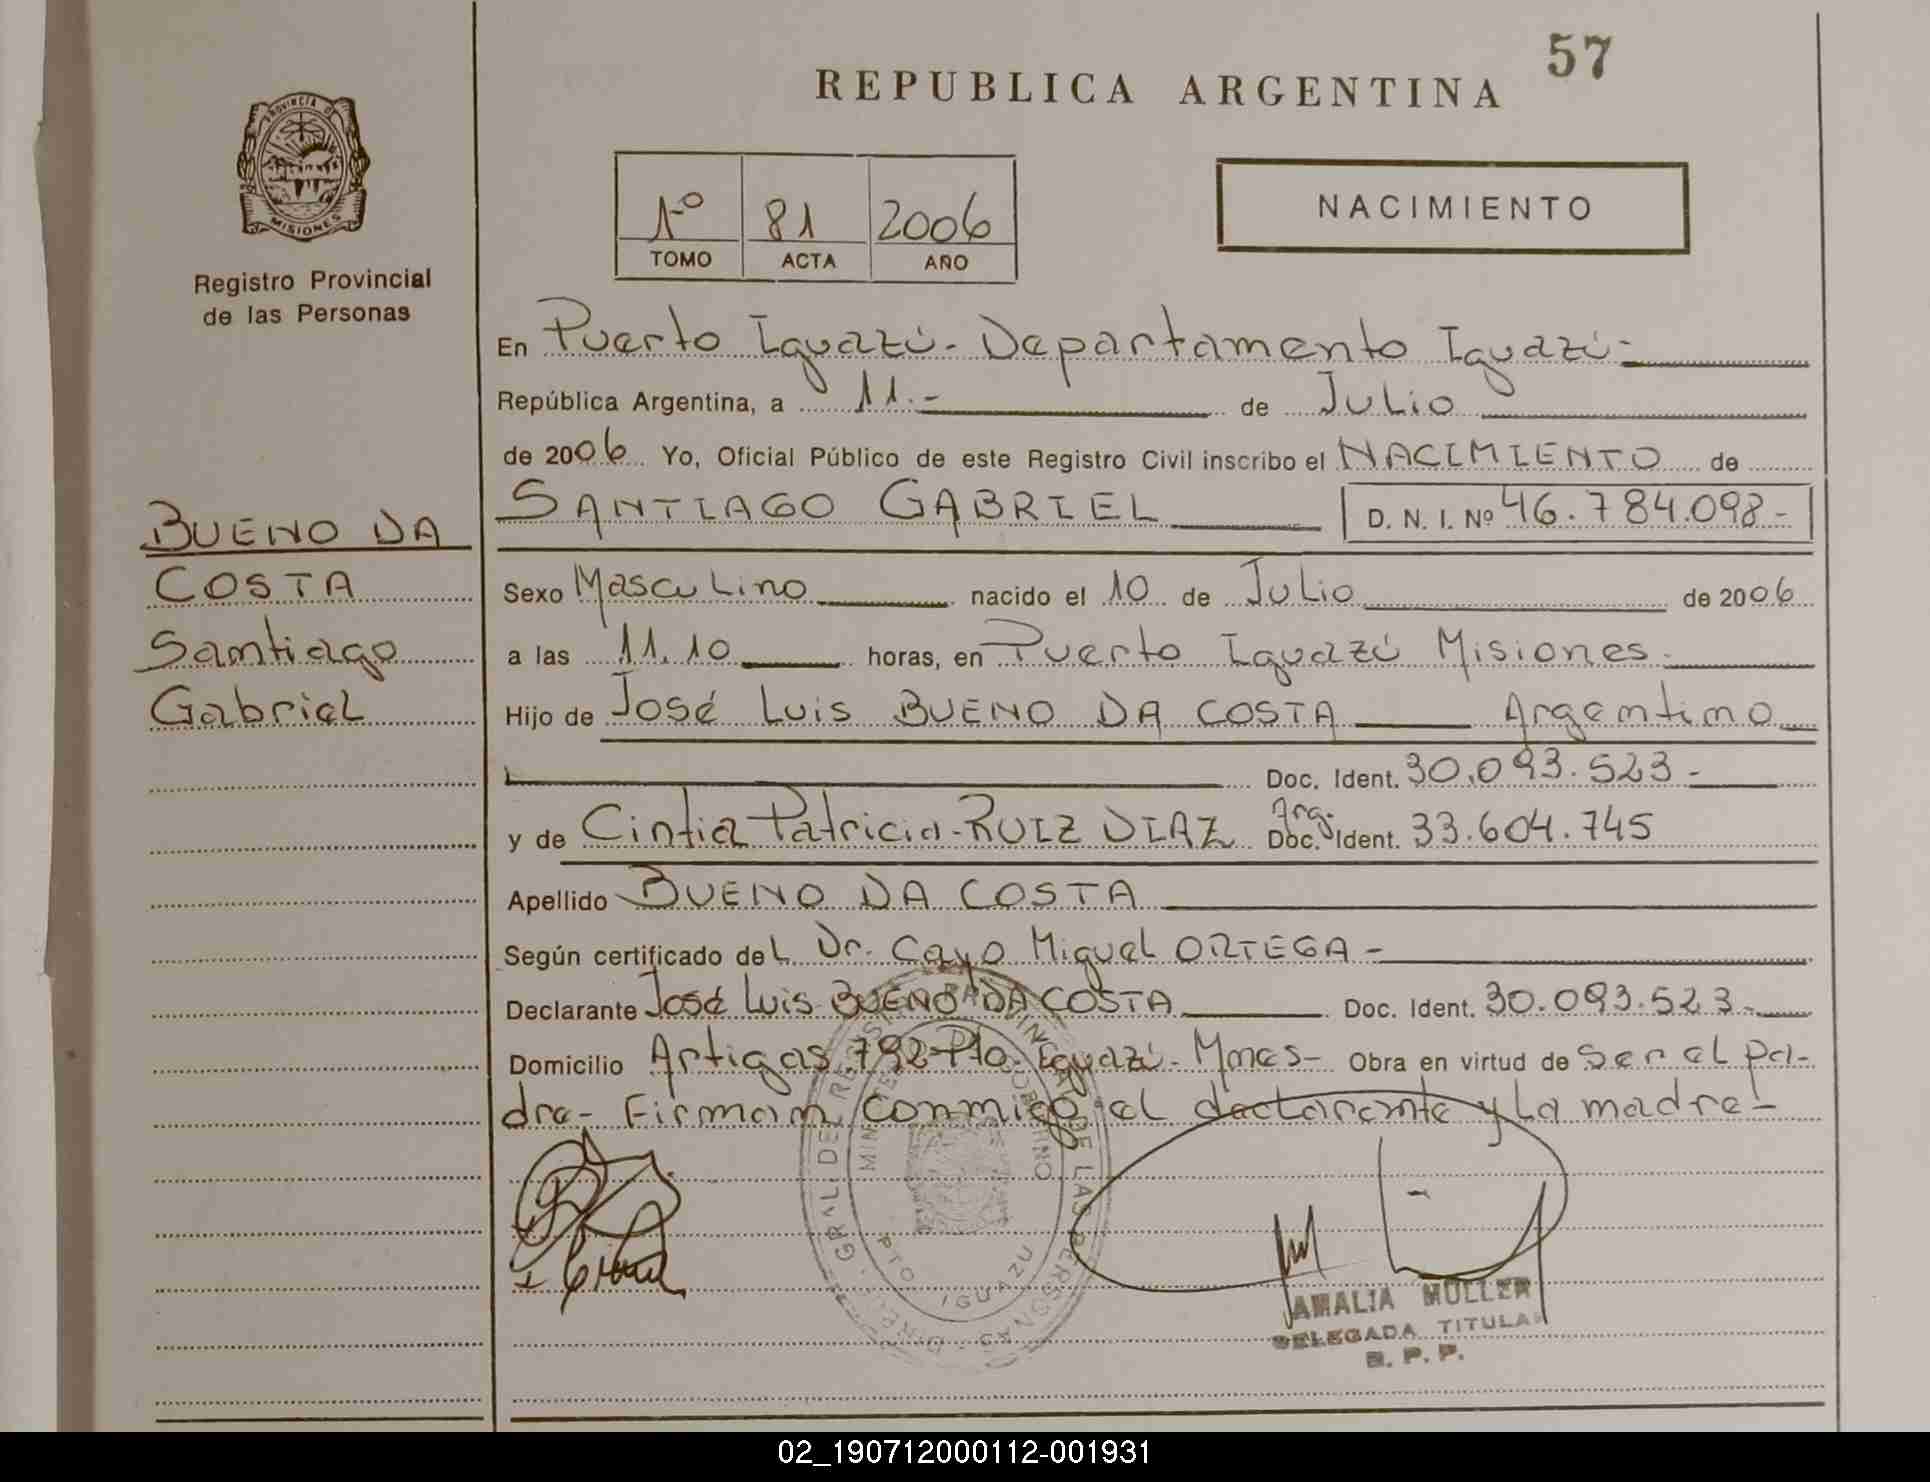 57
REPUBLICA ARGENTINA
PROVINCIA DE
MISIONES
Registro Provincial
de las Personas
1º 81 2006
TOMO ACTA AÑO
NACIMIENTO
En Puerto Iguazú - Departamento Iguazú -
República Argentina, a 11.- de Julio
de 2006 Yo, Oficial Público de este Registro Civil inscribo el NACIMIENTO de
SANTIAGO GABRIEL D. N. I. Nº 46.784.098-
BUENO DA
COSTA
Santiago
Gabriel
Sexo Masculino nacido el 10 de Julio de 2006
a las 11.10 horas, en Puerto Iguazú Misiones.
Hijo de José Luis BUENO DA COSTA Argentino
Doc. Ident. 30.093.523-
y de Cintia Patricia - RUIZ DIAZ Arg. Doc. Ident. 33.604.745
Apellido BUENO DA COSTA
Según certificado del Dr. Cayo Miguel ORTEGA -
Declarante José Luis BUENO DA COSTA Doc. Ident. 30.093.523-
Domicilio Artigas 792 - Pto. Iguazú - Mnes - Obra en virtud de ser el pa-
dre - Firman conmigo el declarante y la madre -
PTO IGUAZU
AMALIA MULLER
DELEGADA TITULAR
R. P. P.
02_190712000112-001931